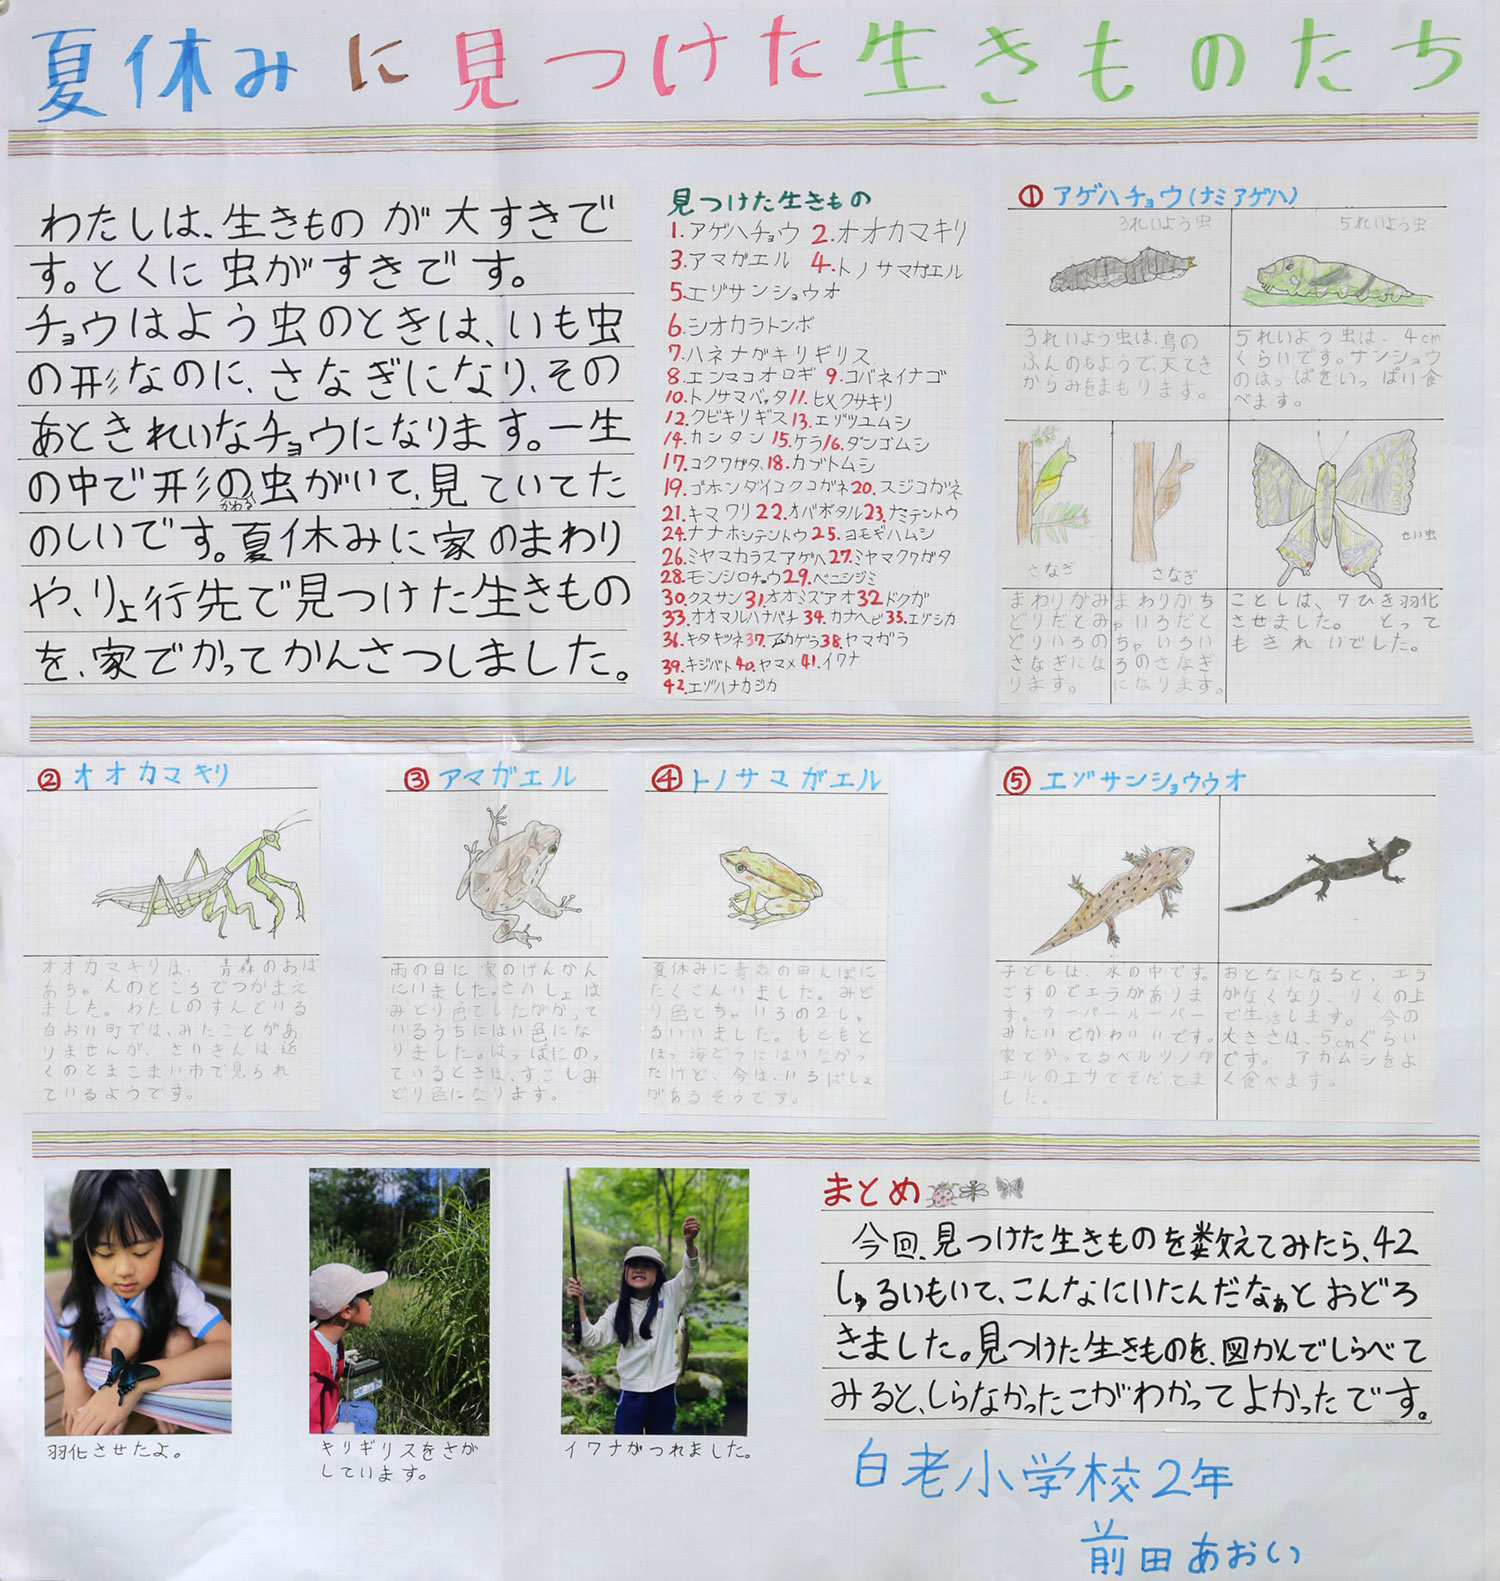 夏休みに見つけた生きものたち
わたしは、生きものが大すきで
す。とくに虫がすきです。
チョウはよう虫のときは、いも虫
の形なのに、さなぎになり、その
あときれいなチョウになります。一生
の中で形の虫がいて、見ていてた
かわる
のしいです。夏休みに家のまわり
や、りょ行先で見つけた生きもの
を、家でかってかんさつしました。
見つけた生きもの
1.アゲハチョウ 2.オオカマキリ
3.アマガエル 4.トノサマガエル
5.エゾサンショウオ
6.シオカラトンボ
7.ハネナガキリギリス
8.エンマコオロギ 9.コバネイナゴ
10.トノサマバッタ 11.ヒメクサキリ
12.クビキリギス 13.エゾツユムシ
14.カンタン 15.ケラ 16.ダンゴムシ
17.コクワガタ 18.カブトムシ
19.ゴホンダイコクコガネ 20.スジコガネ
21.キマワリ 22.オバボタル 23.ナミテントウ
24.ナナホシテントウ 25.ヨモギハムシ
26.ミヤマカラスアゲハ 27.ミヤマクワガタ
28.モンシロチョウ 29.ベニシジミ
30.クスサン 31.オオミズアオ 32ドクガ
33.オオマルハナバチ 34.カナヘビ 35.エゾシカ
36.キタキツネ 37.アカゲラ 38.ヤマガラ
39.キジバト 40.ヤマメ 41.イワナ
42.エゾハナカジカ
① アゲハチョウ(ナミアゲハ)
3れいよう虫
5れいよう虫
3れいよう虫は、鳥の
ふんのもようで、天てき
からみをまもります。
5れいよう虫は、4cm
くらいです。サンショウ
のはっぱをいっぱい食
べます。
さなぎ
さなぎ
せい虫
まわりがみ
どりだとみ
どりいろの
さなぎにな
ります。
まわりがち
ゃいろだと
ちゃいろい
ろのさなぎ
になります。
ことしは、7ひき羽化
させました。とって
もきれいでした。
② オオカマキリ
オオカマキリは、青森のおば
あちゃんのところでつかまえ
ました。わたしのすんでいる
白おい町では、みたことがあ
りませんが、さいきんは、近
くのとまこまい市で見られ
ているようです。
③ アマガエル
雨の日に家のげんかん
にいました。さいしょは
みどり色でしたがかって
いるうちにはい色にな
りました。はっぱにのっ
ているときは、すこしみ
どり色になります。
④ トノサマガエル
夏休みに青森の田んぼに
たくさんいました。みど
り色とちゃいろの2しゅ
るいいました。もともと
ほっ海どうにはいなかっ
たけど、今は、いるばしょ
があるそうです。
⑤ エゾサンショウウオ
子どもは、水の中です。
ごすのでエラがありま
す。ウーパールーパー
みたいでかわいいです。
家でかってるベルツノガ
エルのエサでそだてま
した。
おとなになると、エラ
がなくなり、りくの上
で生活します。今の
大きさは、5cmぐらい
です。アカムシをよ
く食べます。
羽化させたよ。
キリギリスをさが
しています。
イワナがつれました。
まとめ
今回、見つけた生きものを数えてみたら、42
しゅるいもいて、こんなにいたんだなぁとおどろ
きました。見つけた生きものを、図かんでしらべて
みると、しらなかったこがわかってよかったです。
白老小学校2年
前田あおい